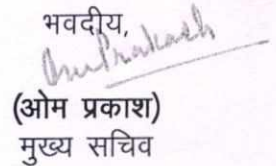 भवदीय,
Om Prakash
(ओम प्रकाश)
मुख्य सचिव